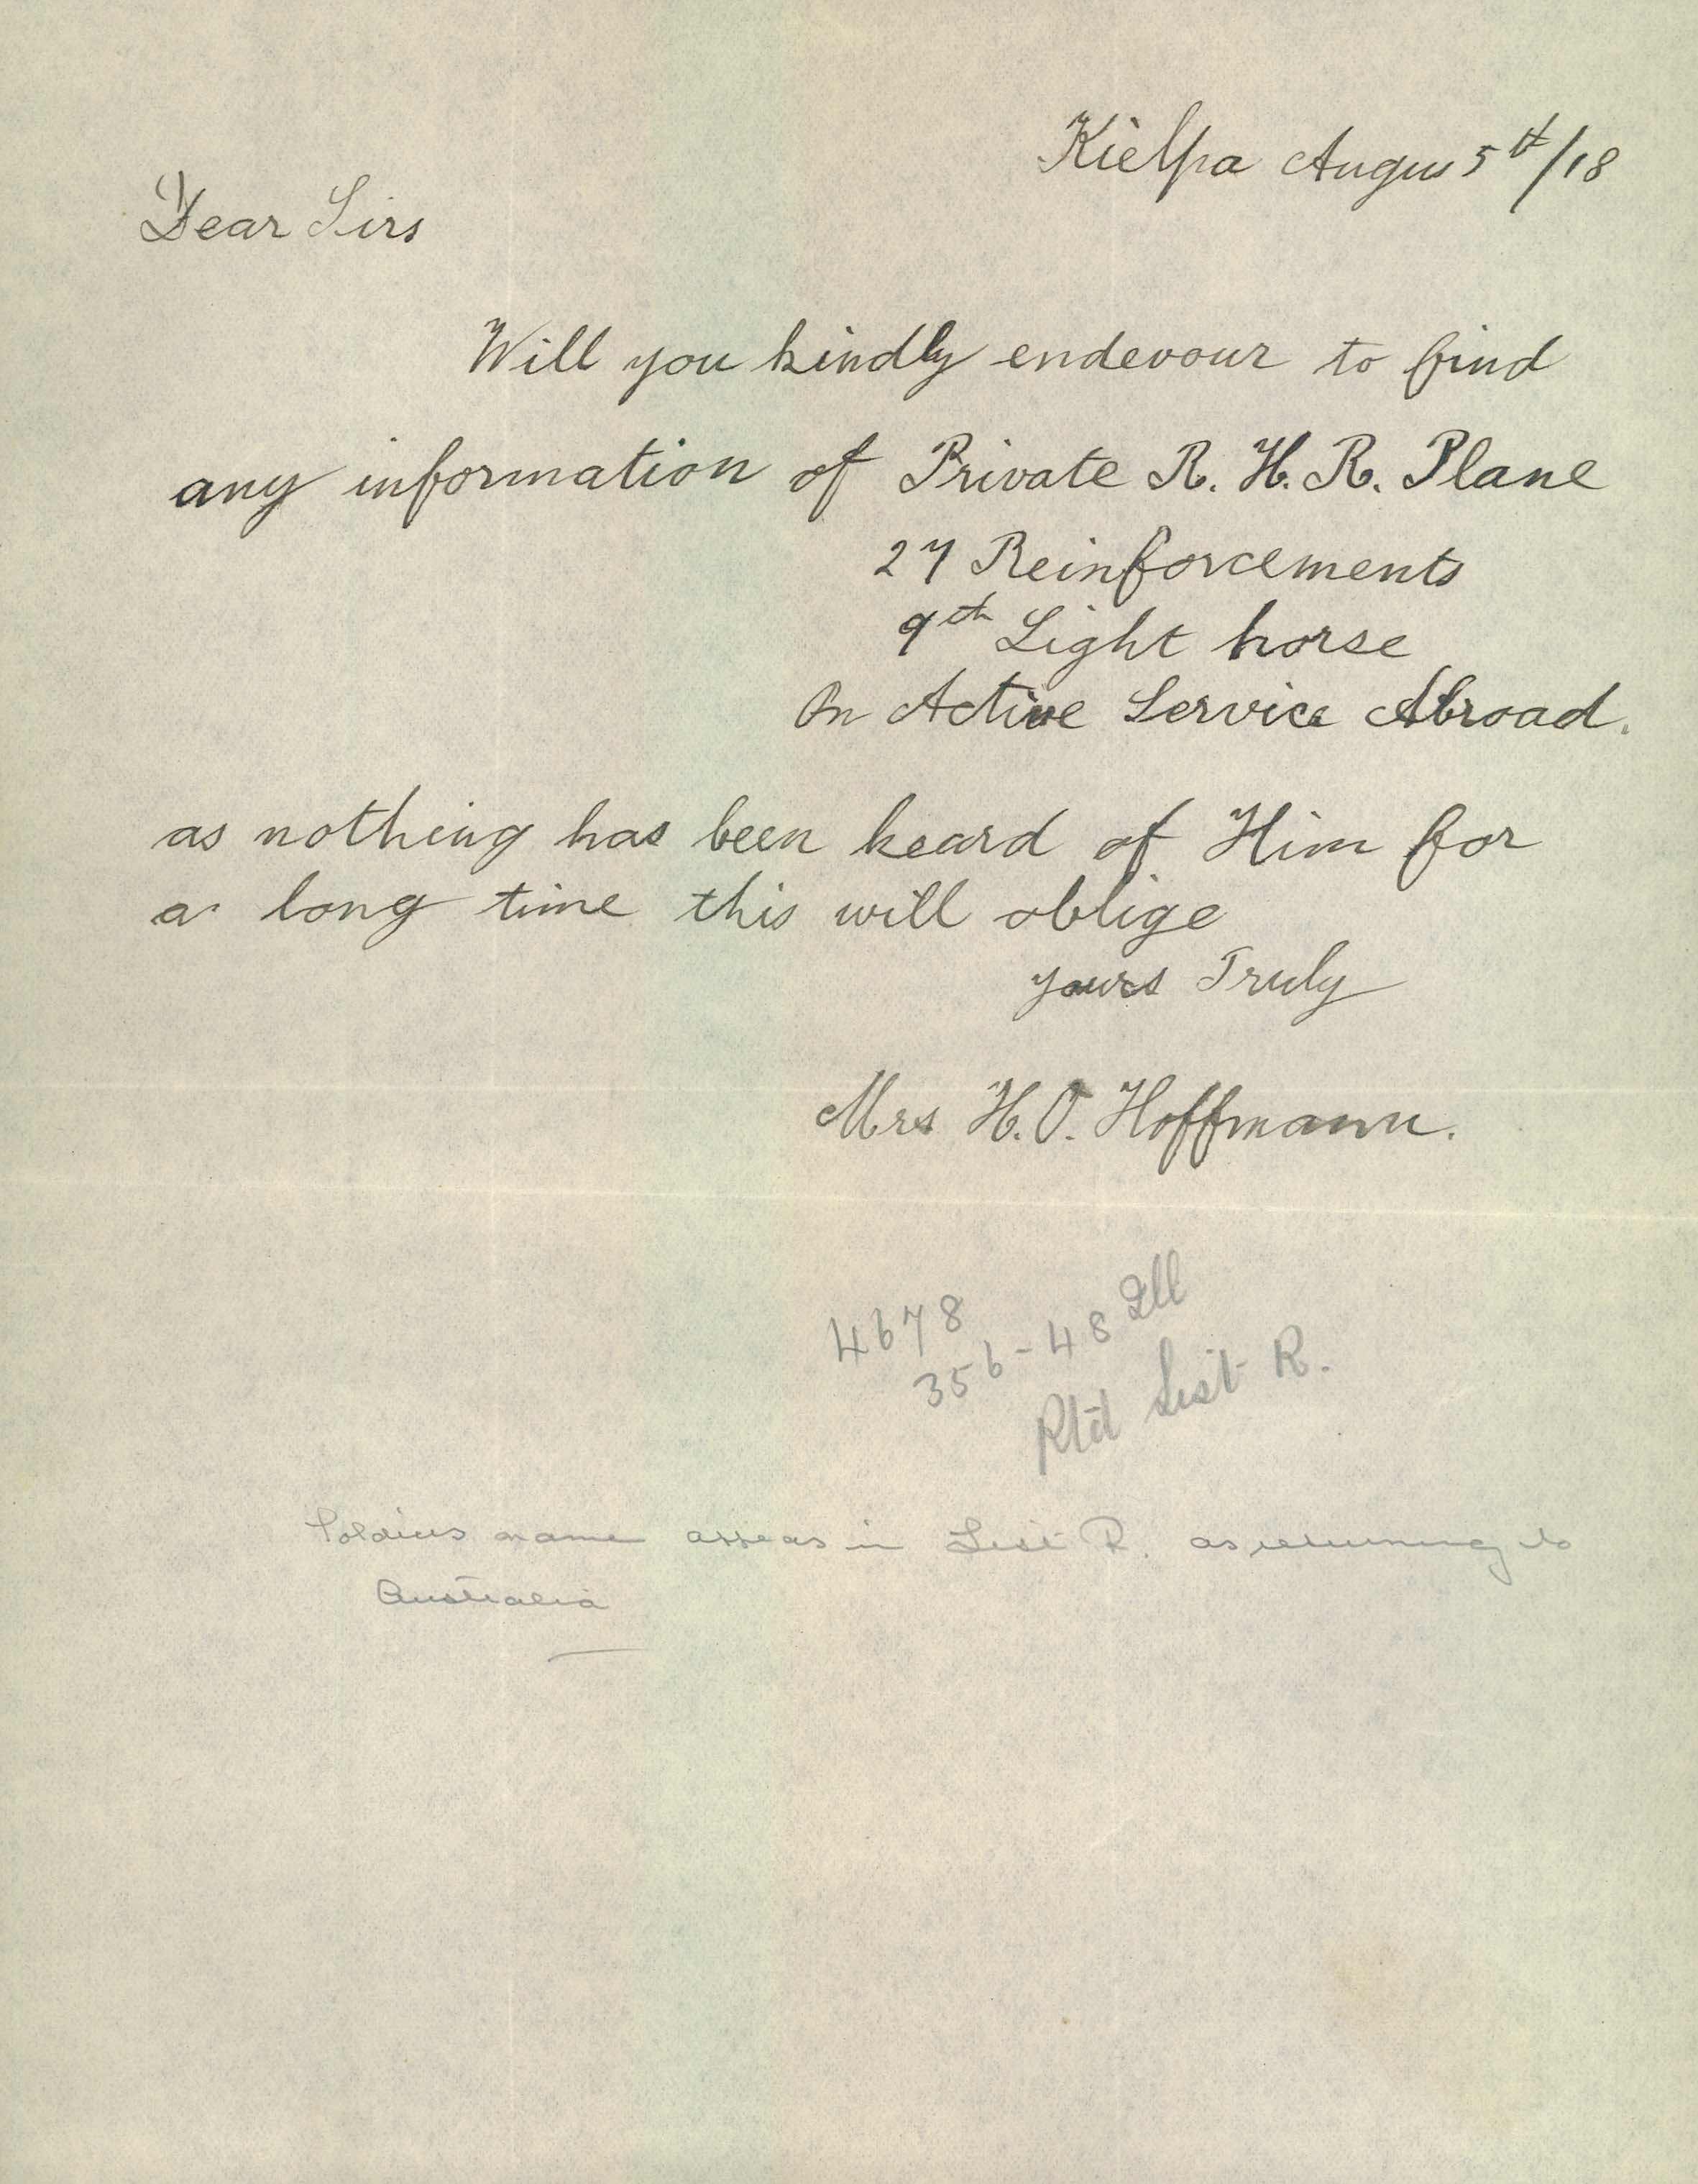 Kielpa Augus 5th/18
Dear Sirs
Will you kindly endevour to find
any information of Private R. H. R. Plane
27 Reinforcements
9th Light horse
On Active Service Abroad.
as nothing has been heard of Him for
a long time this will oblige
yours Truly
Mrs H. O. Hoffmann.
4678
356-48
List R.
Soldiers name appears in List R. as returning to
Australia